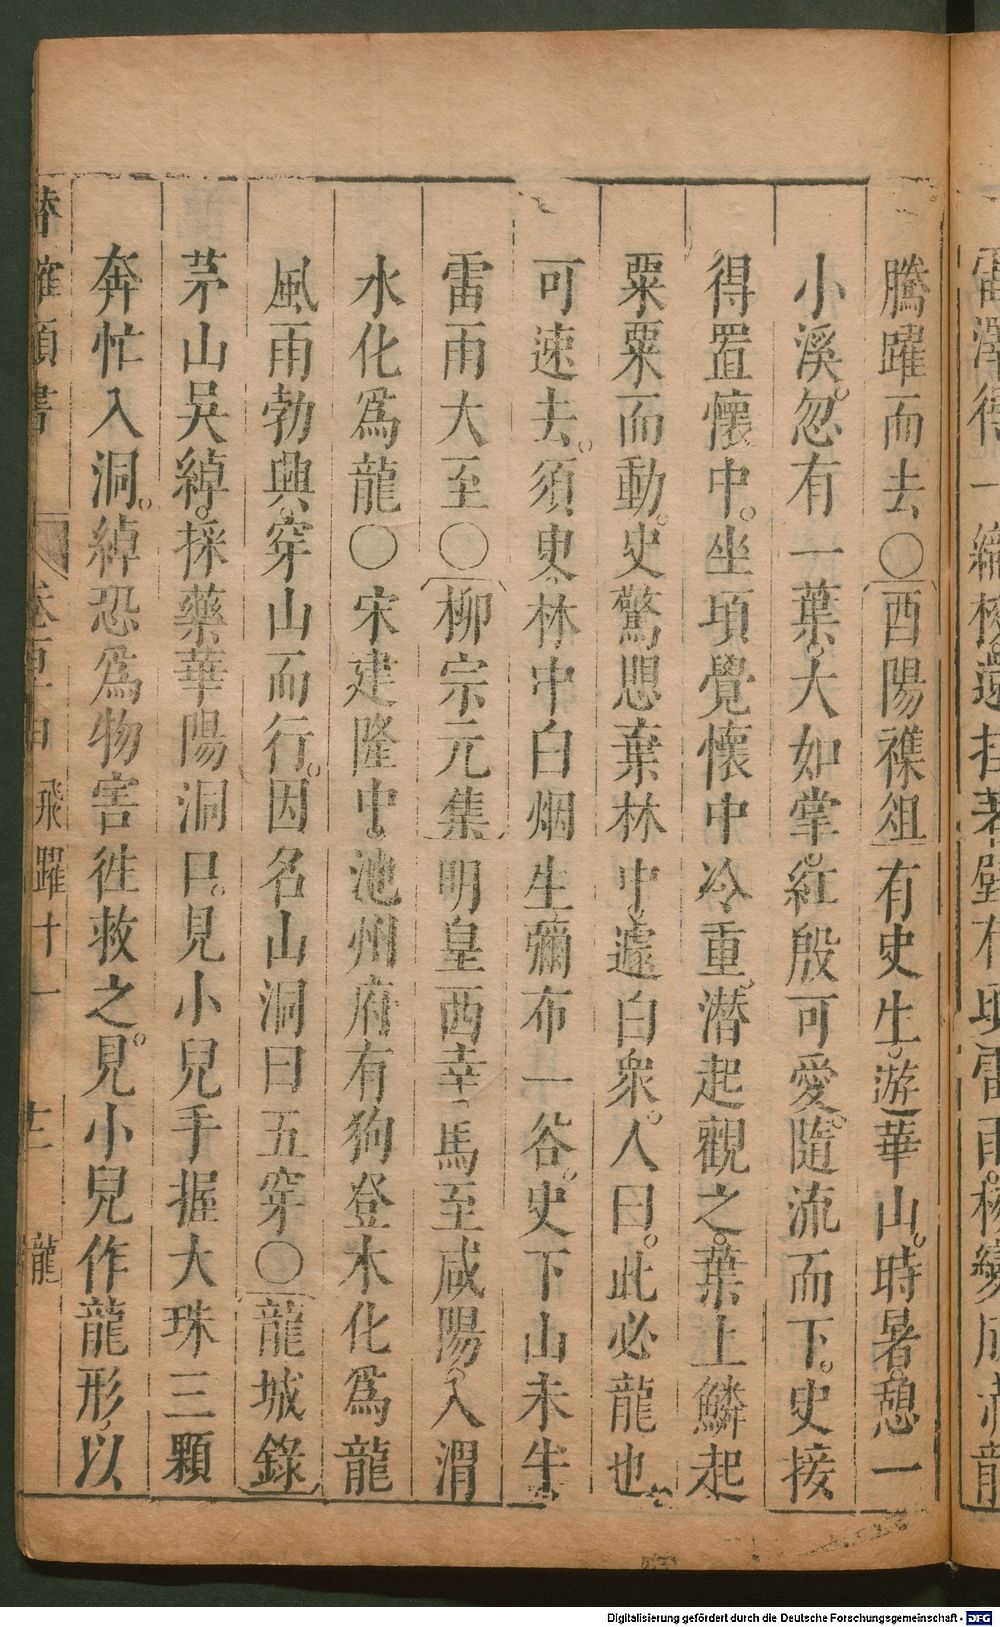 騰躍而去○酉陽襍俎有史生。游華山。時暑。憩一
小溪。忽有一葉。大如掌。紅殷可愛。隨流而下。史接
得置懷中。坐頃覺懷中冷重。潛起觀之。葉上鱗起
粟粟而動。史驚思棄林中。遽白衆。人曰。此必龍也。
可速去。須臾。林中白烟生彌布一谷。史下山未半。
雷雨大至○柳宗元集明皇西幸。馬至咸陽。入渭
水化爲龍○宋建隆中。池州府。有狗登木化爲龍
風雨勃興。穿山而行。因名山洞曰五穿○龍城錄
茅山吳綽。採藥華陽洞口。見小兒手握大珠三顆
奔忙入洞。綽恐爲物害徃救之。見小兒作龍形。以
確類書
飛躍十一
龍
Digitalisierung gefördert durch die Deutsche Forschungsgemeinschaft - DFG